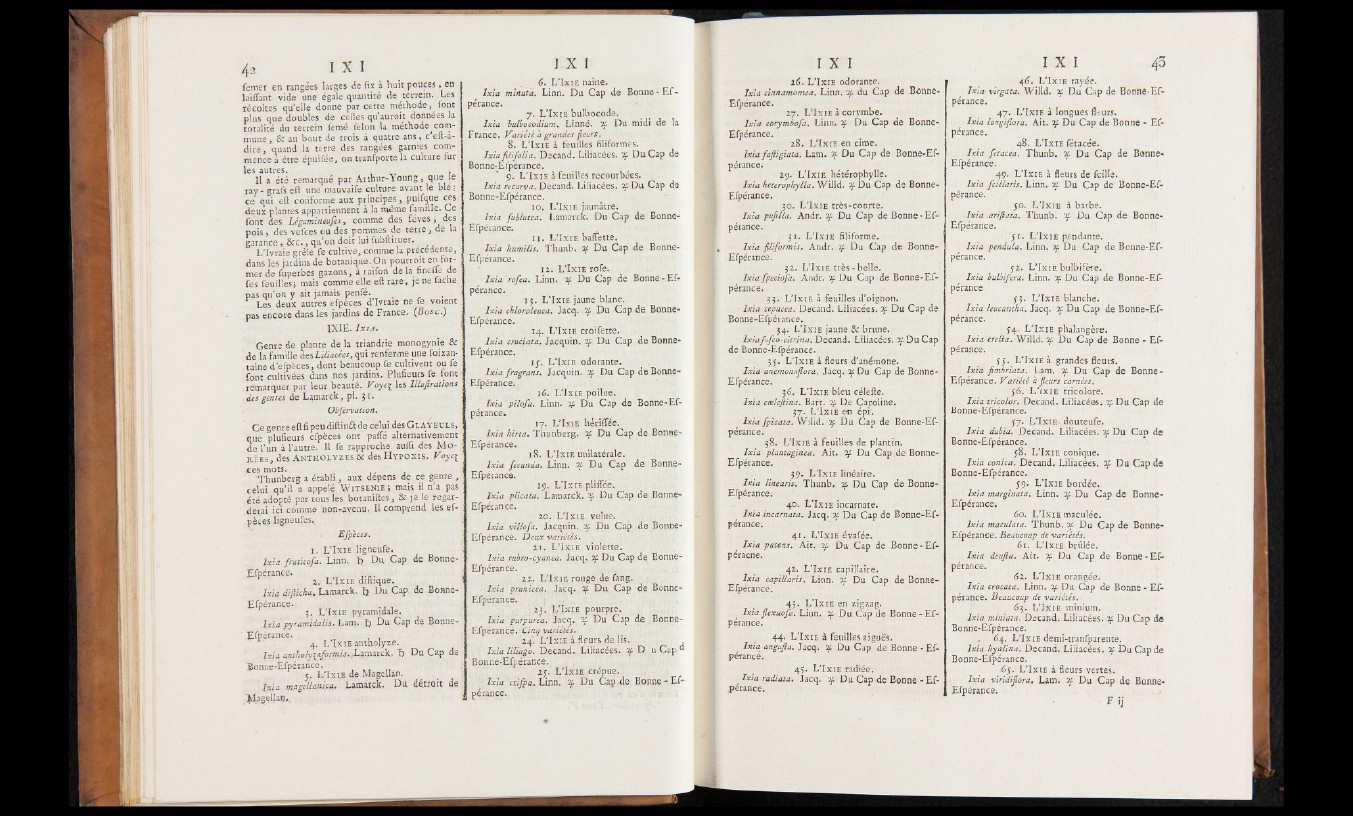 42 I X I
semer en rangées larges de six à huit pouces, en
laissant vide une égale quantité de terrein. Les
récoltes qu'elle donne par cette méthode, sont
plus que doubles de celles qu'auroit données la
totalité du terrein semé selon la méthode com-
mune, & au bout de trois à quatre ans, c'est-à-
dire, quand la terre des rangées garnies com-
mence à être épuisée, on transporte la culture sur
les autres.
Il a été remarqué par Arthur-Young, que le
ray-grass est une mauvaise culture avant le blé:
ce qui est conforme aux principes, puisque ces
deux plantes appartiennent à la même famille. Ce
sont des Légumineuses, comme des fèves, des
pois, des vesces ou des pommes de terre, de la
garance, &c., qu'on doit lui substituer.
L'Ivraie grêle se cultive, comme la précédente,
dans les jardins de botanique. On pourroit en for-
mer de superbes gazons, à raison de la finesse de
ses feuilles; mais comme elle est rare, je ne sache
pas qu'on y ait jamais pensé.
Les deux autres espèces d'Ivraie ne se voient
pas encore dans les jardins de France. (Bosc.)
IXIE. Ixia.
Genre de plante de la triandrie monogynie &
de la famille des Liliacées, qui renferme une soixan-
taine d'espèces, dont beaucoup se cultivent ou se
sont cultivées dans nos jardins. Plusieurs se font
remarquer par leur beauté. Voyez les Illustrations
des genres de Lamarck, pl. 31.
Observation.
Ce genre est si peu distinct de celui des GLAYEULS,
que plusieurs espèces ont passé alternativement
de l'un à l'autre. Il se rapproche aussi des MO-
RÉES, des ANTHOLYZES & des HYPOXIS. Voyez
ces mots.
Thunberg a établi, aux dépens de ce genre,
celui qu'il a appelé WITSENIE; mais il n'a pas
été adopté par tous les botanistes, & je le regar-
derai ici comme non-avenu. Il comprend les es-
pèces ligneuses.
Espèces.
1. L'IXIE ligneuse.
Ixia fruticosa. Linn. ♄ Du Cap de Bonne-
Espérance.
2. L'IXIE distique.
Ixia disticha. Lamarck. ♄ Du Cap de Bonne-
Espérance.
3. L'IXIE pyramidale.
Ixia pyramidalis. Lam. ♄ Du Cap de Bonne-
Espérance.
4. L'IXIE antholyze.
Ixia antholyzæformis. Lamarck. ♄ Du Cap de
Bonne-Espérance.
5. L'IXIE de Magellan.
Ixia magellanica. Lamarck. Du détroit de
Magellan.
I X I
6. L'IXIE naine.
Ixia minuta. Linn. Du Cap de Bonne-Es-
pérance.
7. L'IXIE bulbocode.
Ixia bulbocodium. Linné. ♃ Du midi de la
France. Variété à grandes fleurs.
8. L'IXIE à feuilles filiformes.
Ixia filifolia. Decand. Liliacées. ♃ Du Cap de
Bonne-Espérance.
9. L'IXIE à feuilles recourbées.
Ixia recurva. Decand. Liliacées. ♃ Du Cap de
Bonne-Espérance.
10. L'IXIE jaunâtre.
Ixia sublutea. Lamarck. Du Cap de Bonne-
Espérance.
11. L'IXIE bassette.
Ixia humilis. Thunb. ♃ Du Cap de Bonne-
Espérance.
12. L'IXIE rose.
Ixia rosea. Linn. ♃ Du Cap de Bonne-Es-
pérance.
13. L'IXIE jaune blanc.
Ixia chloroleuca. Jacq. ♃ Du Cap de Bonne-
Espérance.
14. L'IXIE croisette.
Ixia cruciata. Jacquin. ♃ Du Cap de Bonne-
Espérance.
15. L'IXIE odorante.
Ixia fragrans. Jacquin. ♃ Du Cap de Bonne-
Espérance.
16. L'IXIE poilue.
Ixia pilosa. Linn. ♃ Du Cap de Bonne-Es-
pérance.
17. L'IXIE hérissée.
Ixia hirta. Thunberg. ♃ Du Cap de Bonne-
Espérance.
18. L'IXIE unilatérale.
Ixia secunda. Linn. ♃ Du Cap de Bonne-
Espérance.
19. L'IXIE plissée.
Ixia plicata. Lamarck. ♃ Du Cap de Bonne-
Espérance.
20. L'IXIE velue.
Ixia villosa. Jacquin. ♃ Du Cap de Bonne-
Espérance. Deux variétés.
21. L'IXIE violette.
Ixia rubro-cyanea. Jacq. ♃ Du Cap de Bonne-
Espérance.
22. L'IXIE rouge de sang.
Ixia punicea. Jacq. ♃ Du Cap de Bonne-
Espérance.
23. L'IXIE pourpre.
Ixia purpurea. Jacq. ♃ Du Cap de Bonne-
Espérance. Cinq variétés.
24. L'IXIE à fleurs de lis.
Ixia liliago. Decand. Liliacées. ♃ D u Cap d
Bonne-Espérance.
25. L'IXIE crépue.
Ixia crispa. Linn. ♃ Du Cap de Bonne-Es-
pérance.
I X I
26. L'IXIE odorante.
Ixia cinnamomea. Linn. ♃ du Cap de Bonne-
Espérance.
27. L'IXIE à corymbe.
Ixia corymbosa. Linn. ♃ Du Cap de Bonne-
Espérance.
28. L'IXIE en cime.
Ixia fastigiata. Lam. ♃ Du Cap de Bonne-Es-
pérance.
29. L'IXIE hétérophylle.
Ixia heterophylla. Willd. ♃ Du Cap de Bonne-
Espérance.
30. L'IXIE très-courte.
Ixia pusilla. Andr. ♃ Du Cap de Bonne-Es-
pérance.
31. L'IXIE filiforme.
Ixia filiformis. Andr. ♃ Du Cap de Bonne-
Espérance.
32. L'IXIE très-belle.
Ixia speciosa. Andr. ♃ Du Cap de Bonne-Es-
pérance.
33. L'IXIE à feuilles d'oignon.
Ixia cepacea. Decand. Liliacées. ♃ Du Cap de
Bonne-Espérance.
34. L'IXIE jaune & brune.
Ixia fusco-citrina. Decand. Liliacées. ♃ Du Cap
de Bonne-Espérance.
35. L'IXIE à fleurs d'anémone.
Ixia anemonæflora. Jacq. ♃ Du Cap de Bonne-
Espérance.
36. L'IXIE bleu céleste.
Ixia cœlestina. Bart. ♃ De Caroline.
37. L'IXIE en épi.
Ixia spicata. Willd. ♃ Du Cap de Bonne-Es-
pérance.
38. L'IXIE à feuilles de plantin.
Ixia plantaginea. Ait. ♃ Du Cap de Bonne-
Espérance.
39. L'IXIE linéaire.
Ixia linearis. Thunb. ♃ Du Cap de Bonne-
Espérance.
40. L'IXIE incarnate.
Ixia incarnata. Jacq. ♃ Du Cap de Bonne-Es-
pérance.
41. L'IXIE évasée.
Ixia patens. Ait. ♃ Du Cap de Bonne-Es-
péracne.
42. L'IXIE capillaire.
Ixia capillaris. Linn. ♃ Du Cap de Bonne-
Espérance.
43. L'IXIE en zigzag.
Ixia flexuosa. Linn. ♃ Du Cap de Bonne-Es-
pérance.
44. L'IXIE à feuilles aiguës.
Ixia angusta. Jacq. ♃ Du Cap de Bonne-Es-
pérance.
45. L'IXIE radiée.
Ixia radiata. Jacq. ♃ Du Cap de Bonne-Es-
pérance.
I X I 43
46. L'IXIE rayée.
Ixia virgata. Willd. ♃ Du Cap de Bonne-Es-
pérance.
47. L'IXIE à longues fleurs.
Ixia longiflora. Ait. ♃ Du Cap de Bonne-Es-
pérance.
48. L'IXIE sétacée.
Ixia setacea. Thunb. ♃ Du Cap de Bonne-
Espérance.
49. L'IXIE à fleurs de scille.
Ixia scillaris. Linn. ♃ Du Cap de Bonne-Es-
pérance.
50. L'IXIE à barbe.
Ixia aristata. Thunb. ♃ Du Cap de Bonne-
Espérance.
51. L'IXIE pendante.
Ixia pendula. Linn. ♃ Du Cap de Bonne-Es-
pérance.
52. L'IXIE bulbifère.
Ixia bulbifera. Linn. ♃ Du Cap de Bonne-Es-
pérance
53. L'IXIE blanche.
Ixia leucantha. Jacq. ♃ Du Cap de Bonne-Es-
pérance.
54. L'IXIE phalangère.
Ixia erecta. Willd. ♃ Du Cap de Bonne-Es-
pérance.
55. L'IXIE à grandes fleurs.
Ixia fimbriata. Lam. ♃ Du Cap de Bonne-
Espérance. Variété à fleurs carnées.
56. L'IXIE tricolore.
Ixia tricolor. Decand. Liliacées. ♃ Du Cap de
Bonne-Espérance.
57. L'IXIE douteuse.
Ixia dubia. Decand. Liliacées. ♃ Du Cap de
Bonne-Espérance.
58. L'IXIE conique.
Ixia conica. Decand. Liliacées. ♃ Du Cap de
Bonne-Espérance.
59. L'IXIE bordée.
Ixia marginata. Linn. ♃ Du Cap de Bonne-
Espérance.
60. L'IXIE maculée.
Ixia maculata. Thunb. ♃ Du Cap de Bonne-
Espérance. Beaucoup de variétés.
61. L'IXIE brûlée.
Ixia deusta. Ait. ♃ Du Cap de Bonne-Es-
pérance.
62. L'IXIE orangée.
Ixia crocata. Linn. ♃ Du Cap de Bonne-Es-
pérance. Beaucoup de variétés.
63. L'IXIE minium.
Ixia miniata. Decand. Liliacées. ♃ Du Cap de
Bonne-Espérance.
64. L'IXIE demi-transparente.
Ixia hyalina. Decand. Liliacées. ♃ Du Cap de
Bonne-Espérance.
65. L'IXIE à fleurs vertes.
Ixia viridiflora. Lam. ♃ Du Cap de Bonne-
Espérance.
F ij